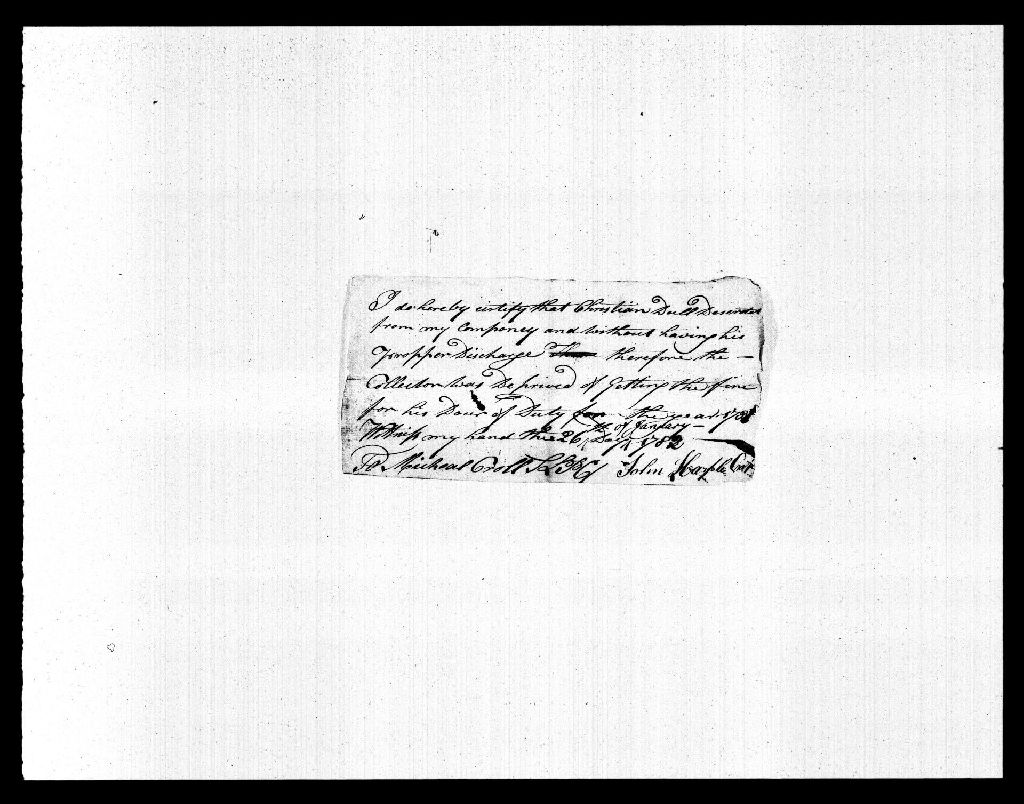 I do hereby certify that Christian Dull Deserded
from my Compeney and without having his
Propper Discharge therefore the —
Collector was Deprived of Getting the fine
for his Dour of Duty for the year 1781
Wittnis my hand the 26th Day of Janúary — 1782
To Micheal Croll John Harple Capt